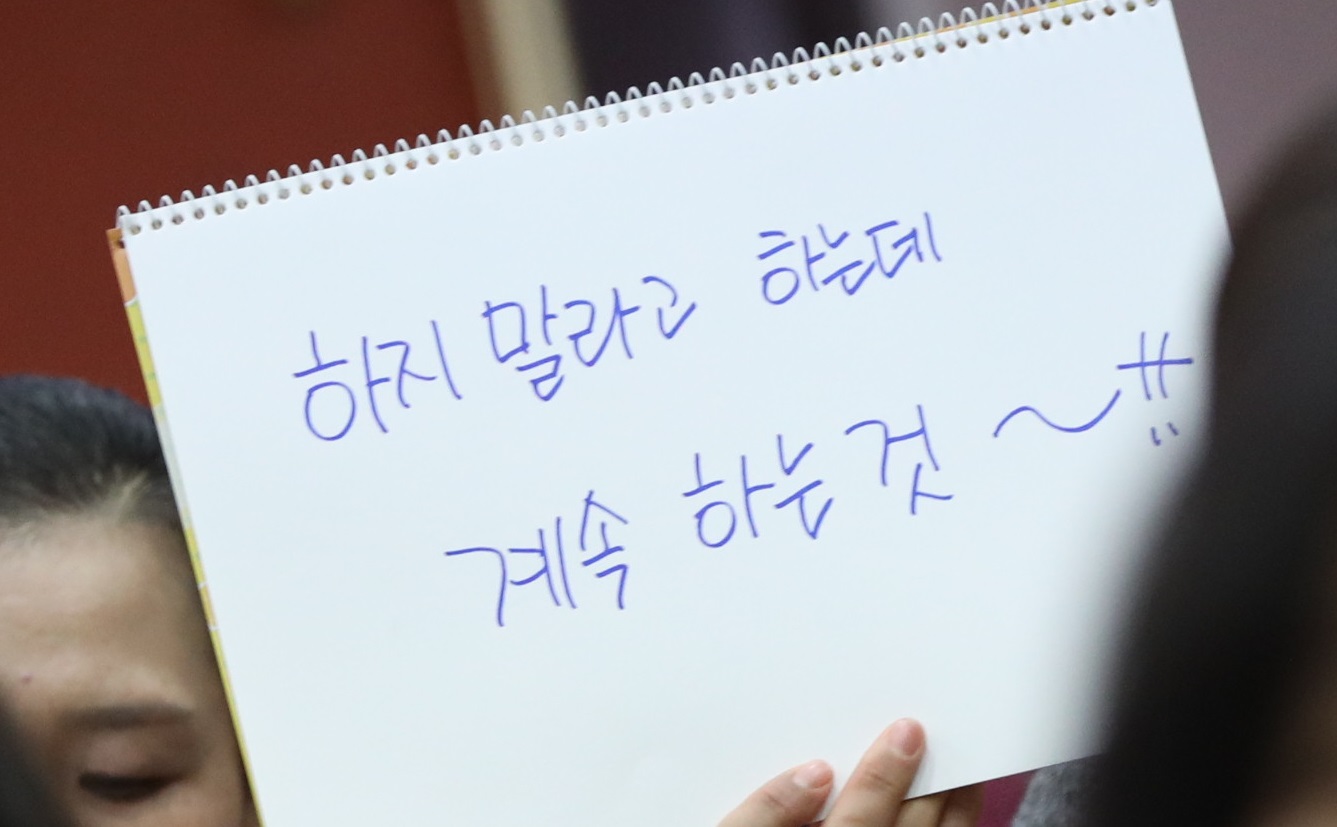 하지 말라고 하는데
계속 하는것~!!